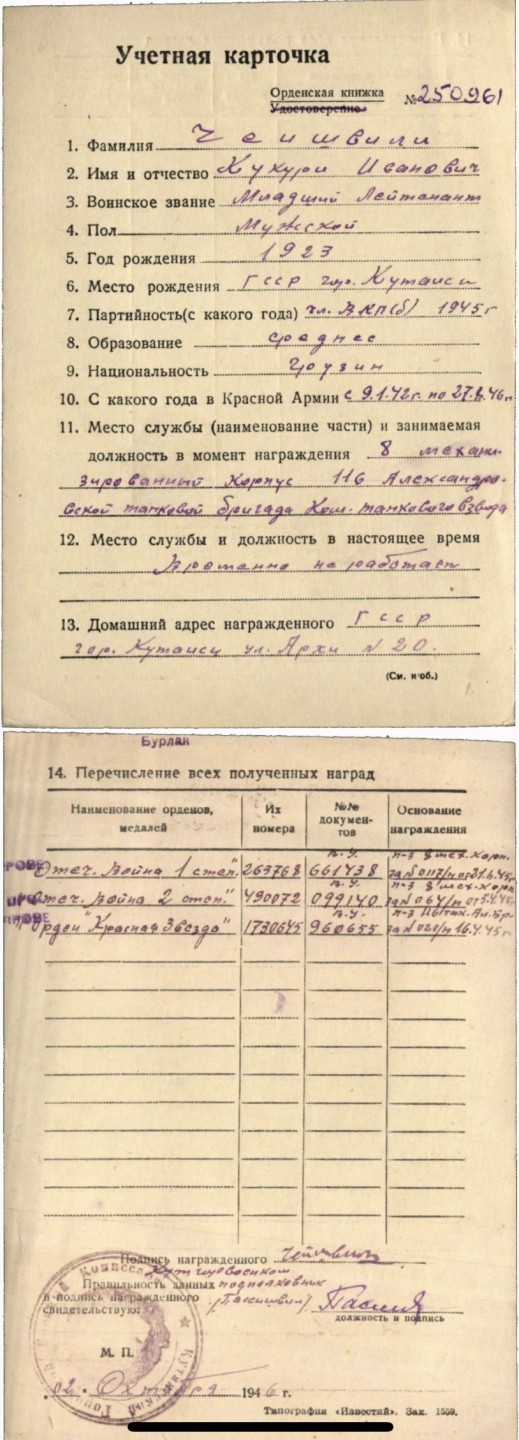 Учетная карточка
Орденская книжка
Удостоверение
№ 250961
1. Фамилия Чеишвили
2. Имя и отчество Кукури Иванович
3. Воинское звание Младший Лейтенант
4. Пол Мужской
5. Год рождения 1923
6. Место рождения ГССР гор. Кутаиси
7. Партийность(с какого года) чл. ВКП(б) 1945 г
8. Образование среднее
9. Национальность Грузин
10. С какого года в Красной Армии с 9.1.42г. по 27.6.46г.
11. Место службы (наименование части) и занимаемая
должность в момент награждения 8 механи-
зированный Корпус 116 Александро-
вской танковой бригада Ком. танкового взвода
12. Место службы и должность в настоящее время
Временно не работает
13. Домашний адрес награжденного ГССР
гор. Кутаиси ул. Архи № 20.
(См. н об.)
Бурлак
14. Перечисление всех полученных наград
Наименование орденов, медалей
Их номера
№№ документов
Основание награждения
Отеч. Война 1 степ. 263768 п.у. 661438 п-з 8 мех. корп. за № 0117/н от 21.6.45г.
Отеч. Война 2 степ." 490072 п.у. 099140 п-з 8 мех. корп за № 064/н от 5.4.45г.
Орден "Красная Звезда" 1730645 п.у. 960655 п-з 116 танк. Ал. Бр. за № 020/н 16.4.45г.
Подпись награжденного
Кут. горвоенком
Правильность данных подполковник
и подпись награжденного
свидетельствую:
должность и подпись
М. П.
02. Октября 1946 г.
Типография «Известий». Зак. 1559.